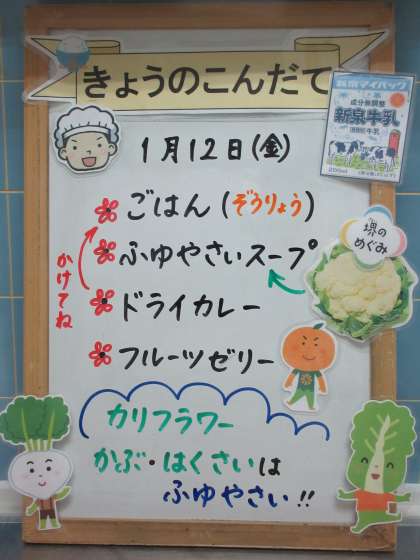 きょうのこんだて
1月12日(金)
新泉マイパック
成分無調整
新泉牛乳
200ml
ごはん(ぞうりょう)
堺の
めぐみ
ふゆやさいスープ
かけてね
ドライカレー
フルーツゼリー
カリフラワー
かぶ・はくさいは
ふゆやさい!!